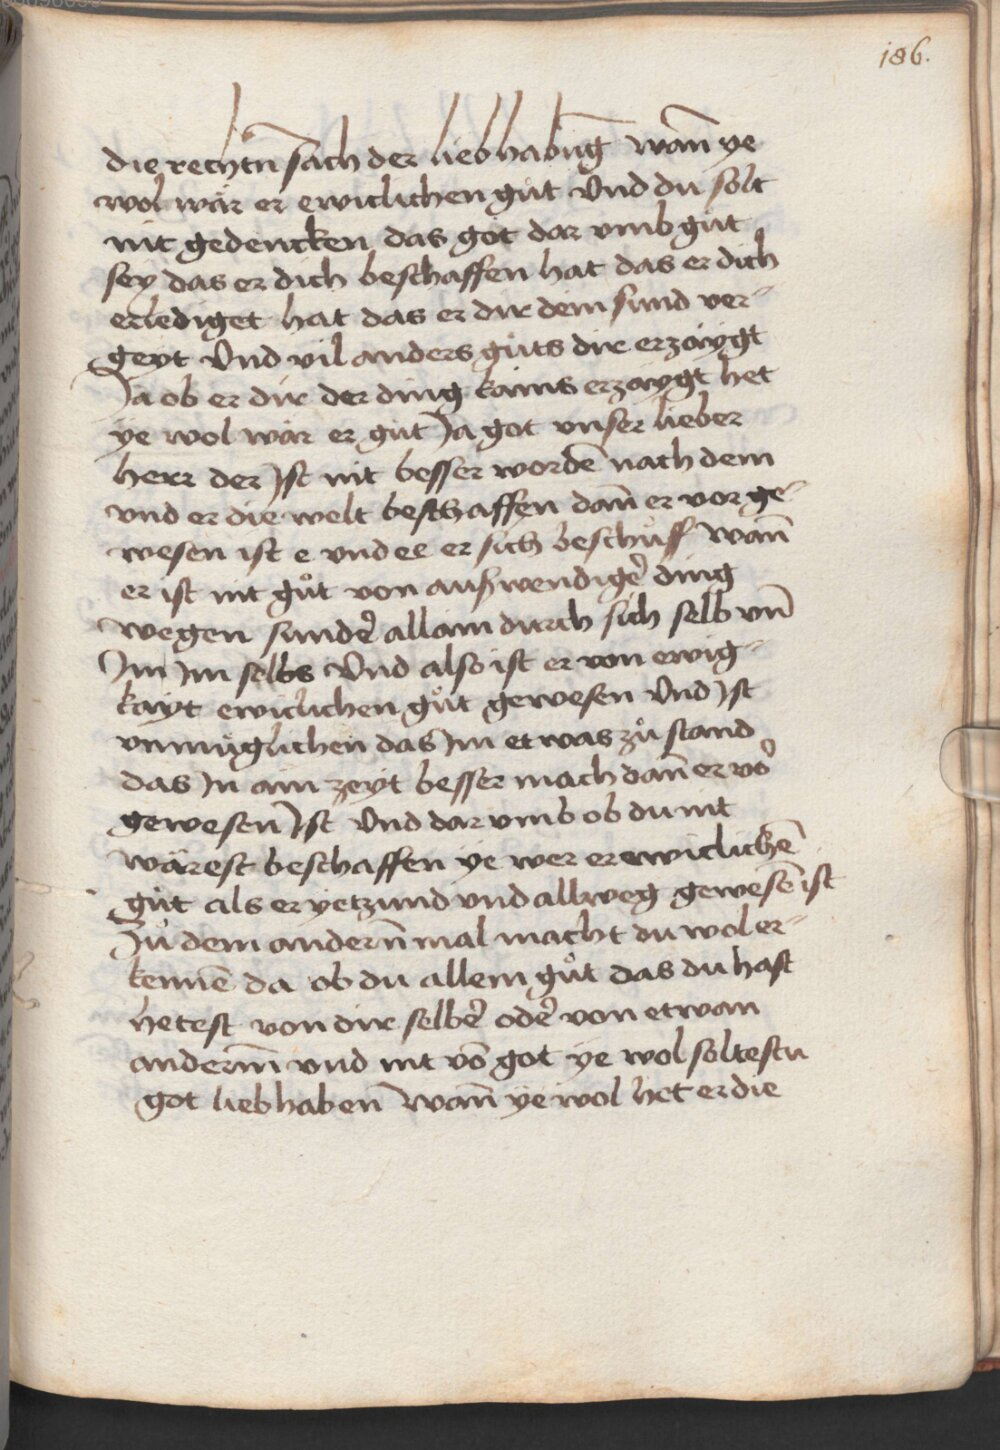 186.
die rechtn̄ sach der liebhabūg wan̄ ye
wol wär er ewiclichen gůt Vnd du solt
nit gedencken das got dar vmb gůt
sey das er dich beschaffen hat das er dich
erlediget hat das er dir dein sund ver-
geyt Vnd vil anders gůts dir erzaygt
Ja ob er dir der ding kains erzaygt het
ye wol wär er gůt Ja got vnser lieber
herr der Jst nit besser wordē nach dem
vnd er die welt beschaffen dan̄ er vor ge-
wesen ist e vnd ee er sich beschůff wan̄
er ist nit gůt von auswendiger ding
wegen sunder allain durch sich selb vn̄
Jn Jm selbs Vnd also ist er von ewig-
kayt ewiclichen gůt gewesen Vnd Jst
vnmüglichen das Jm etwas zů stand
das Jn ain zeyt besser mach dan̄ er vor
gewesen Jst Vnd dar vmb ob du nit
wärest beschaffen ye wer er ewiclichē
gůt als er yetzund vnd allweg gewesē ist
Zů dem andern̄ mal macht du wol er-
kennē da ob du allein gůt das du hast
hetest von dir selber oder von etwan
anderm̄ vnd nit vō got ye wol soltestu
got liebhaben̄ Wan̄ ye wol het er die